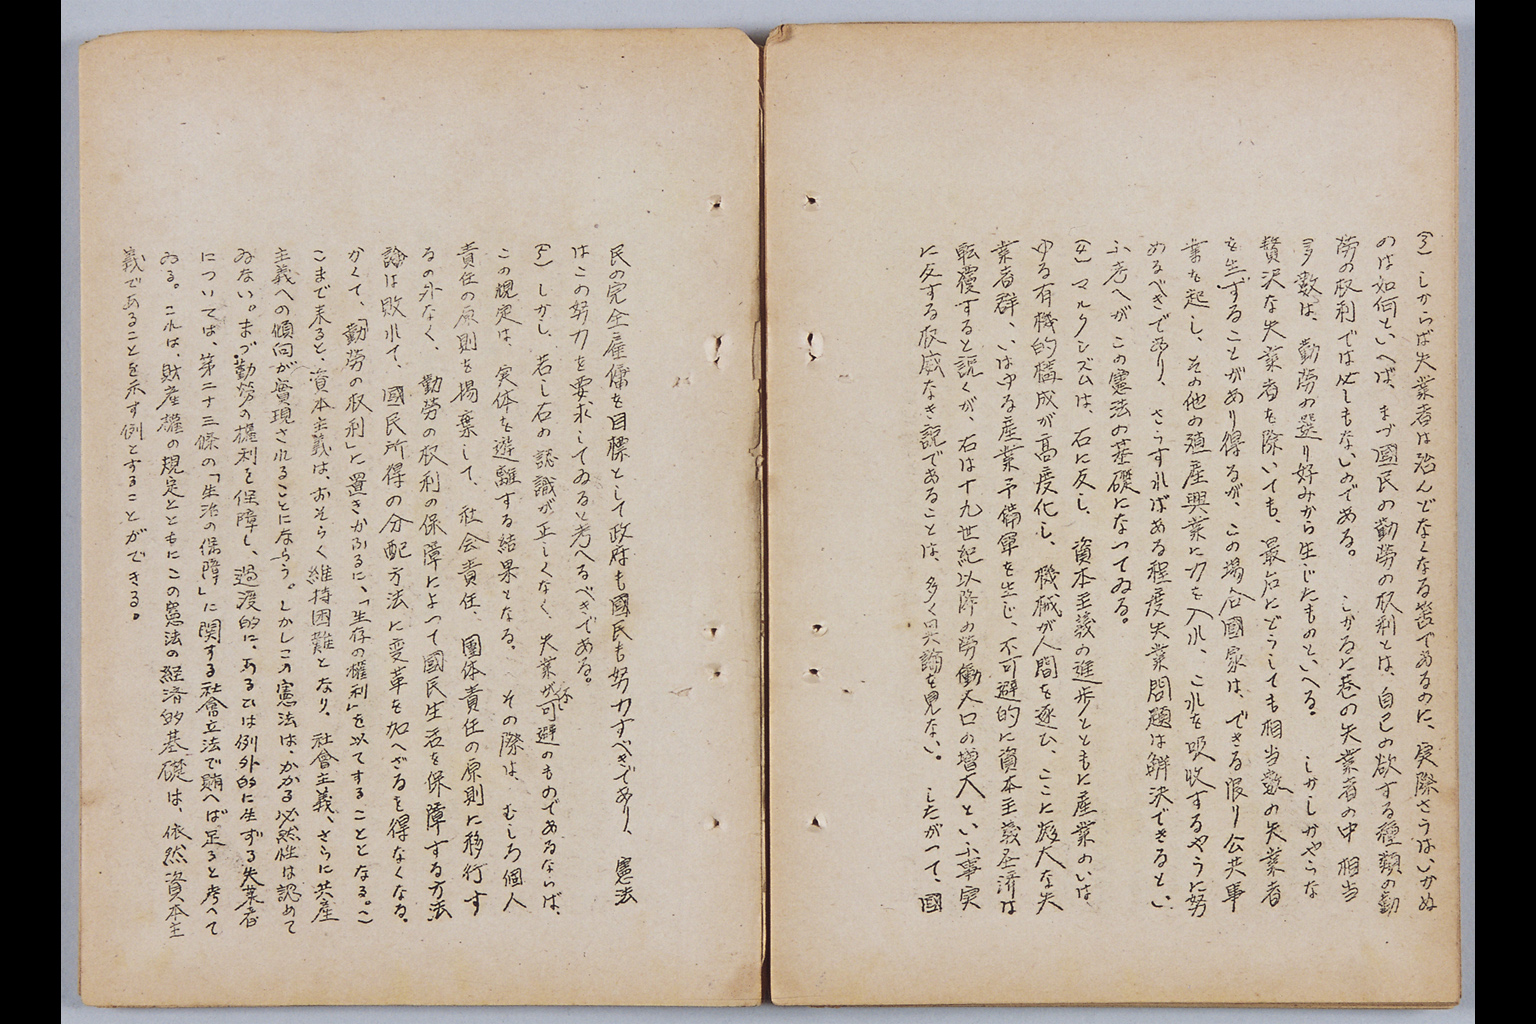 (3) しからば失業者は殆んどなくなる筈であるのに、実際さうはいかぬ
のは如何といへば、まづ國民の勤勞の权利とは、自己の欲する種類の勤
勞の权利では必しもないのである。 しかるに巷の失業者の中 相当
多数は、勤勞の選り好みから生じたものといへる。 しかしかやうな
贅沢な失業者を除いても、最后にどうしても相当数の失業者
を生ずることがあり得るが、この場合國家は、できる限り公共事
業を起し、その他の殖産興業に力を入れ、これを吸收するやうに努
めるべきであり、 さうすればある程度失業問題は解決できるとい
ふ考へが この憲法の基礎になってゐる。
(4) マルクシズムは、右に反し、資本主義の進歩とともに産業のいは
ゆる有機的構成が高度化し、機械が人間を逐ひ、ここに厖大な失
業者群、いはゆる産業予備軍を生じ、不可避的に資本主義经濟は
転覆すると説くが、右は十九世紀以降の勞働人口の増大といふ事実
に反する权威なき説であることは、多く異論を見ない。 したがって、國
民の完全雇傭を目標として政府も國民も努力すべきであり、 憲法
はこの努力を要求してゐると考へるべきである。
(5) しかし、若し右の認識が正しくなく、失業が不可避のものであるならば、
この規定は、実体を遊離する結果となる。 その際は、むしろ個人
責任の原則を揚棄して、社会責任、團体責任の原則に移行す
るの外なく、勤勞の权利の保障によって國民生活を保障する方法
論は敗れて、國民所得の分配方法に変革を加へざるを得なくなる。
かくて、「勤勞の权利」に置きかふるに、「生存の權利」を以てすることとなる。こ
こまで来ると、資本主義は、おそらく維持困難となり、社會主義、さらに共産
主義への傾向が實現されることにならう。しかしこの憲法は、かかる必然性は認めて
ゐない。まづ勤勞の權利を保障し、過渡的に、あるひは例外的に生ずる失業者
については、第二十三條の「生活の保障」に関する社會立法で賄へば足ると考へて
ゐる。これは、財産權の規定とともにこの憲法の経済的基礎は、依然資本主
義であることを示す例とすることができる。